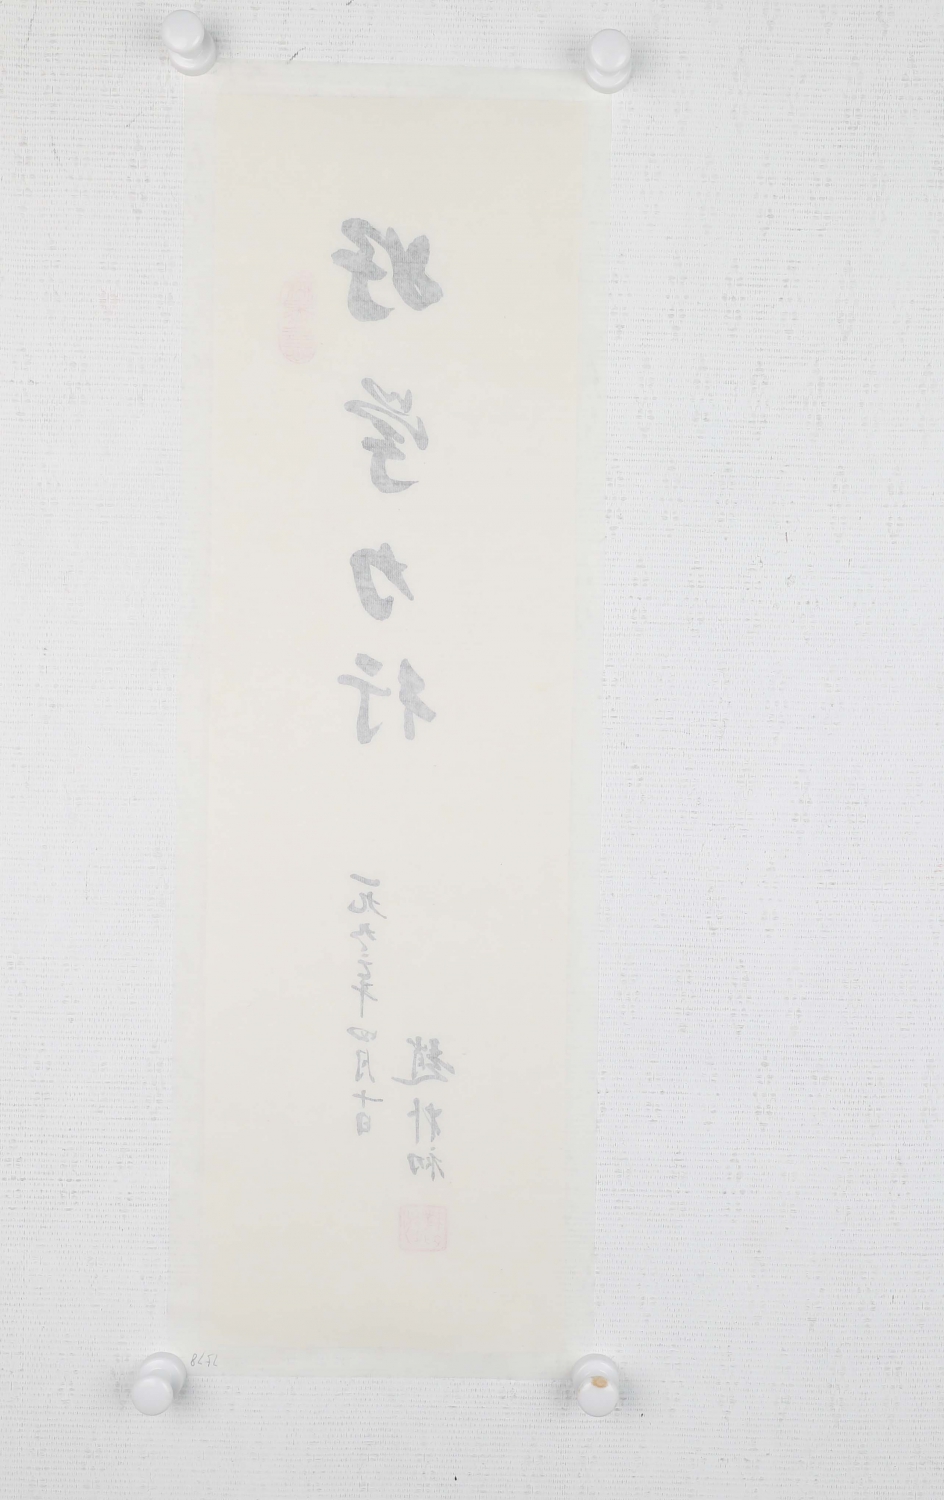 好学力行
一九九六年四月十日
趙朴初